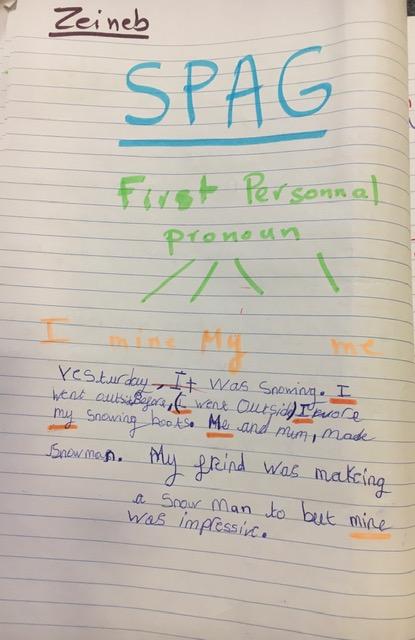 Zeineb
SPAG
First Personnal
pronoun
I mine My me
Yesturday, It was snowing. I
went outside. Before, (I went Outside) I wore
my snowing boots. Me and mum, made
snowman. My frind was making
a snow man to but mine
was impressive.